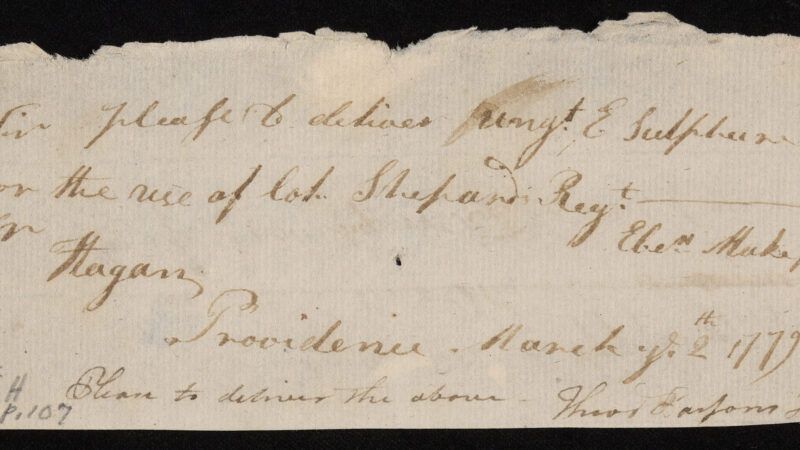 Sir please to deliver ungt. E Sulphure
for the use of Col. Shepard Regt.
Eben Make
Hagan
Providence March ye. 2th 1779
Please to deliver the above Theos Parsons
H
P. 107